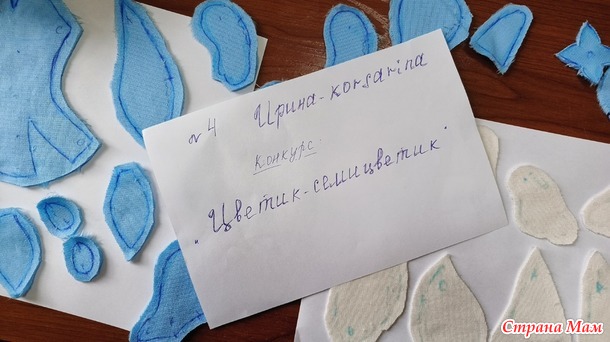 № 4 Ирина-korsarina
конкурс
"Цветик-семицветик"
Страна Мам